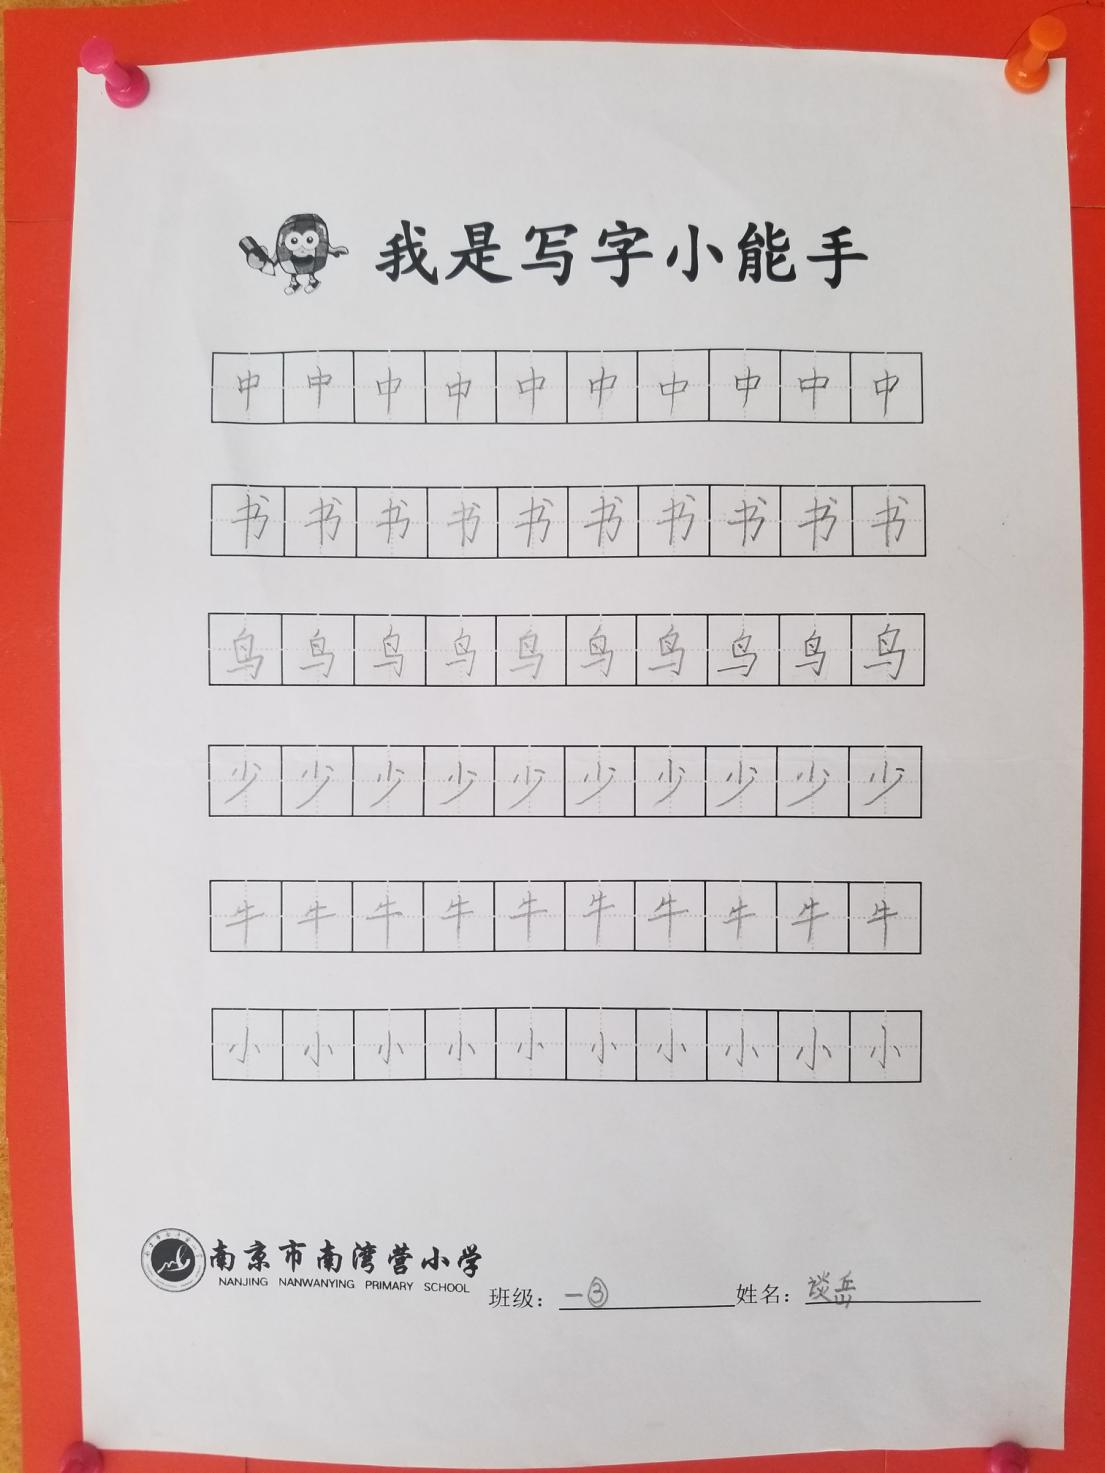 我是写字小能手
中中中中中中中中中中
书书书书书书书书书书
鸟鸟鸟鸟鸟鸟鸟鸟鸟鸟
少少少少少少少少少少
牛牛牛牛牛牛牛牛牛牛
小小小小小小小小小小
南京市南湾营小学
NANJING NANWANYING PRIMARY SCHOOL
班级：一③ 姓名：谈岳